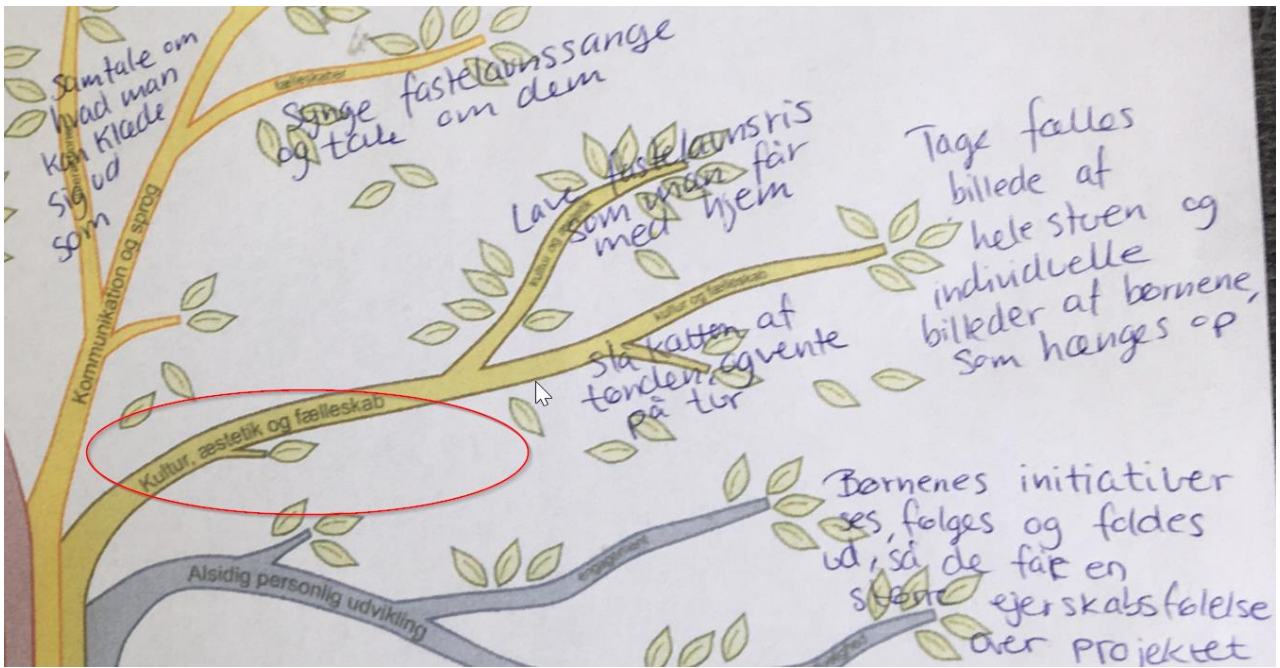 Samtale om
hvad man
kan klæde
sig ud
som
Kommunikation og sprog
fælleskaber
Synge fastelavnssange
og tale om dem
Lave fastelavnsris
som man får
med hjem
kultur og
kultur og fælleskab
Tage fælles
billede af
hele stuen og
individuelle
billeder af børnene,
som hænges op
Slå katten af
tønden, og vente
på tur
Kultur, æstetik og fælleskab
Alsidig personlig udvikling
engagement
Børnenes initiativer
ses, følges og foldes
ud, så de får en
større ejerskabsfølelse
over projektet